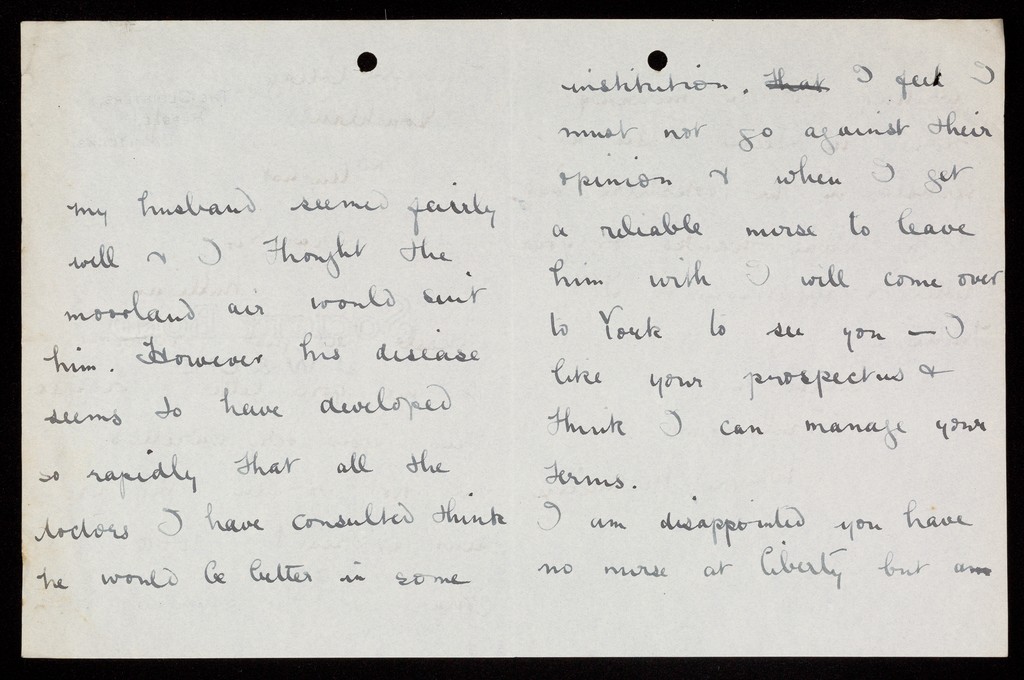 my husband seemed fairly
well & I thought the
moorland air would suit
him. However his disease
seems to have developed
so rapidly that all the
doctors I have consulted think
he would be better in some
institution. that I feel I
must not go against their
opinion & when I get
a reliable nurse to leave
him with I will come over
to York to see you — I
like your prospectus &
think I can manage your
terms.
I am disappointed you have
no nurse at liberty but am